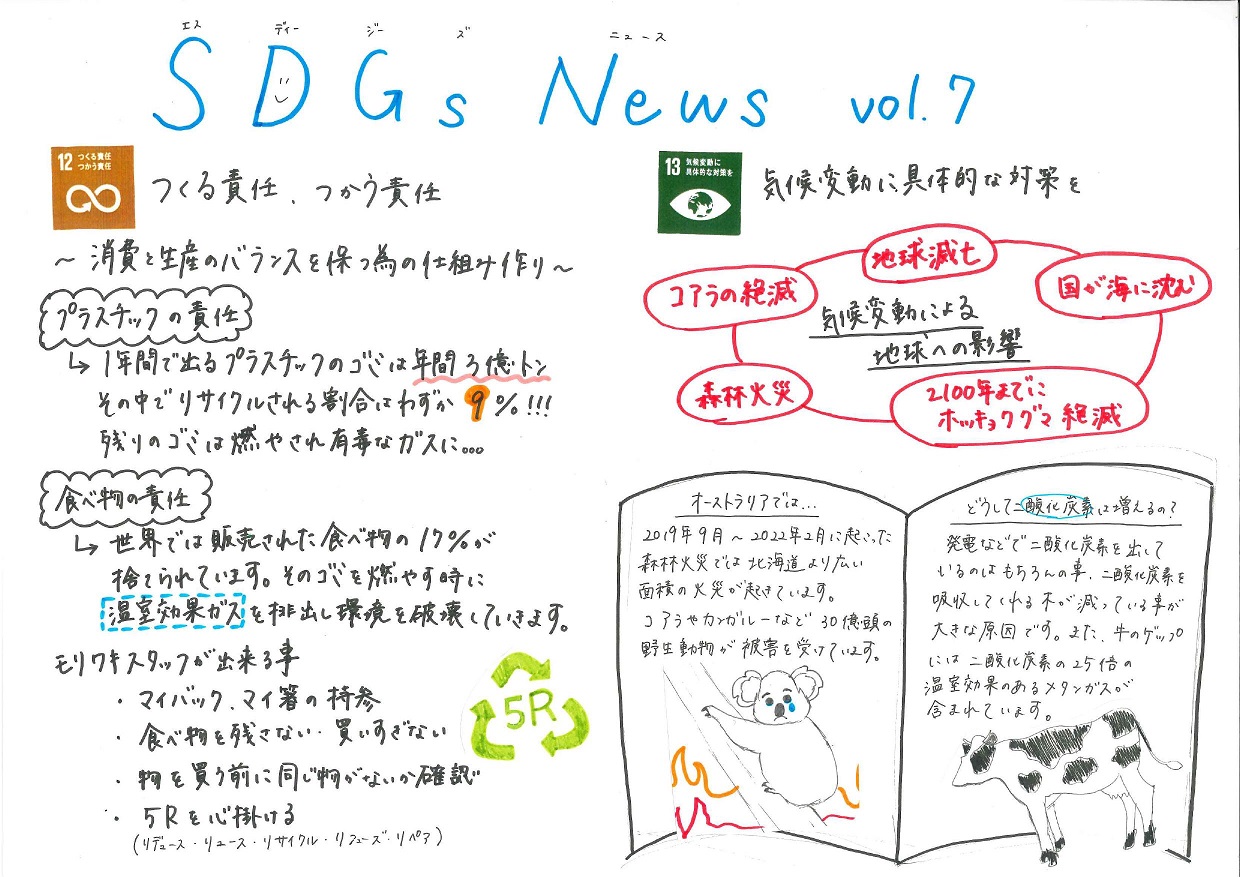 エス ディー ジー ズ ニュース
SDGs News vol.7
12 つくる責任
つかう責任
つくる責任、つかう責任
～消費と生産のバランスを保つ為の仕組み作り～
プラスチックの責任
↳ 1年間で出るプラスチックのゴミは年間3億トン
その中でリサイクルされる割合はわずか 9%!!!
残りのゴミは燃やされ有毒なガスに…
食べ物の責任
↳ 世界では販売された食べ物の17%が
捨てられています。そのゴミを燃やす時に
温室効果ガスを排出し環境を破壊していきます。
モリワキスタッフが出来る事
・マイバック、マイ箸の持参
・食べ物を残さない・買いすぎない
・物を買う前に同じ物がないか確認
・5Rを心掛ける
(リデュース・リユース・リサイクル・リフューズ・リペア)
5R
13 気候変動に
具体的な対策を
気候変動に具体的な対策を
地球滅亡
コアラの絶滅
国が海に沈む
気候変動による
地球への影響
森林火災
2100年までに
ホッキョクグマ絶滅
オーストラリアでは…
2019年9月～2022年2月に起こった
森林火災では北海道より広い
面積の火災が起きています。
コアラやカンガルーなど30億頭の
野生動物が被害を受けています。
どうして二酸化炭素は増えるの?
発電などで二酸化炭素を出して
いるのはもちろんの事、二酸化炭素を
吸収してくれる木が減っている事が
大きな原因です。また、牛のゲップ
には二酸化炭素の25倍の
温室効果のあるメタンガスが
含まれています。